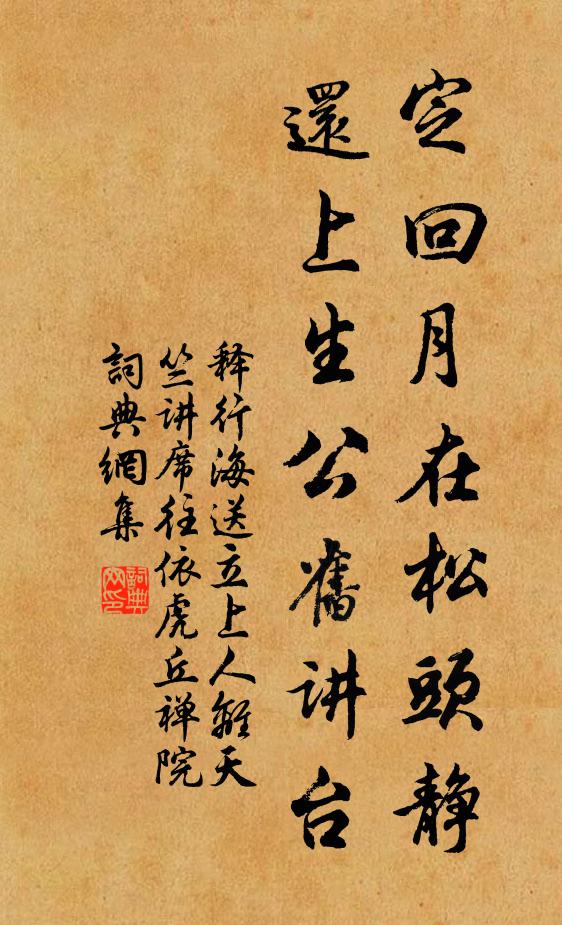 定回月在松頭静
還上生公舊讲台
释行海送立上人雜天
竺讲席往依虎丘禅院
詞典網集
詞典
网印